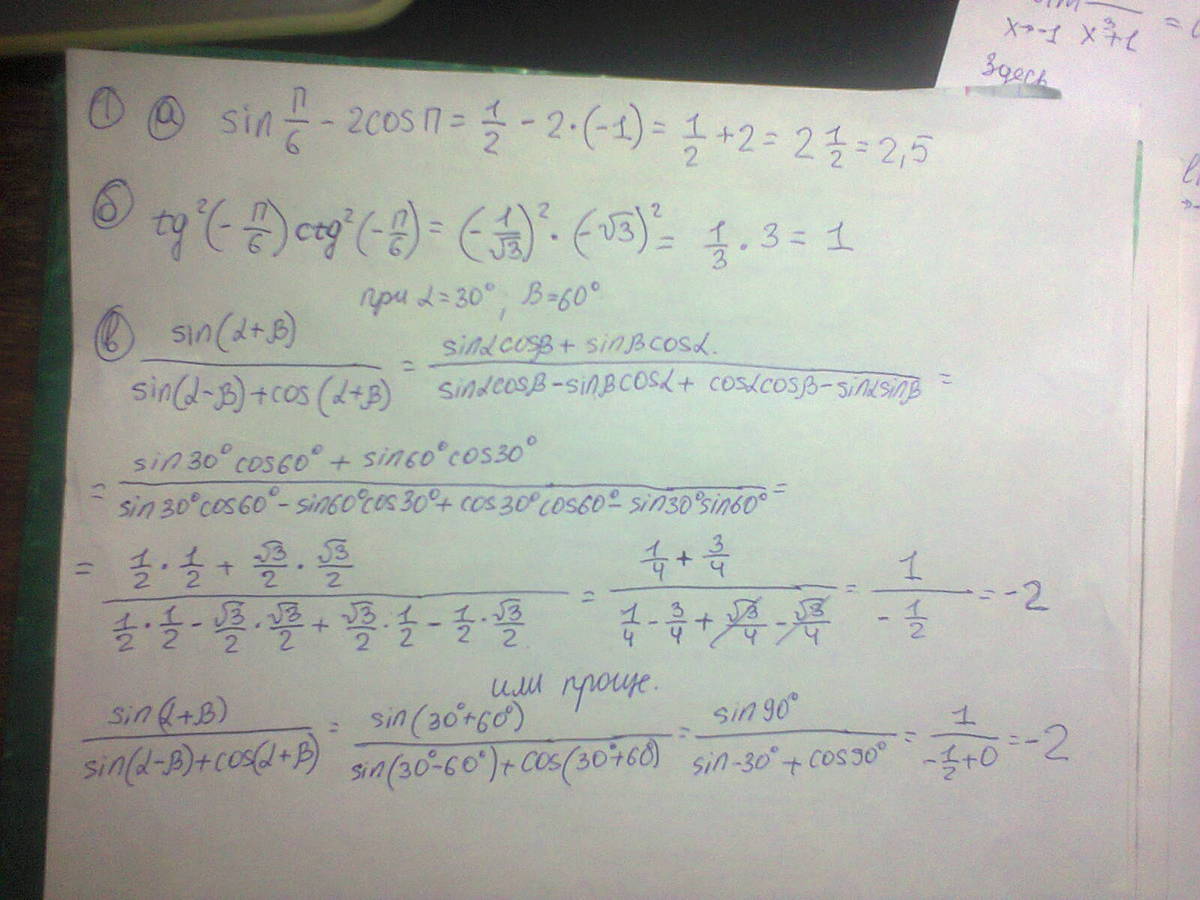 x→-1 x³+1 =
Здесь
① а) sin π/6 - 2cosπ = 1/2 - 2·(-1) = 1/2 + 2 = 2 1/2 = 2,5
б) tg²(-π/6) ctg²(-π/6) = (-1/√3)² · (-√3)² = 1/3 · 3 = 1
при α=30°, β=60°
в) sin(α+β) / sin(α-β)+cos(α+β) = sinαcosβ + sinβcosα. / sinαcosβ-sinβcosα + cosαcosβ-sinαsinβ =
= sin30°cos60° + sin60°cos30° / sin30°cos60° - sin60°cos30° + cos30°cos60° - sin30°sin60° =
= 1/2 · 1/2 + √3/2 · √3/2 / 1/2 · 1/2 - √3/2 · √3/2 + √3/2 · 1/2 - 1/2 · √3/2 = 1/4 + 3/4 / 1/4 - 3/4 + √3/4 - √3/4 = 1 / -1/2 = -2
или проще.
sin(α+β) / sin(α-β)+cos(α+β) = sin(30°+60°) / sin(30°-60°)+cos(30°+60°) = sin90° / sin-30°+cos90° = 1 / -1/2+0 = -2